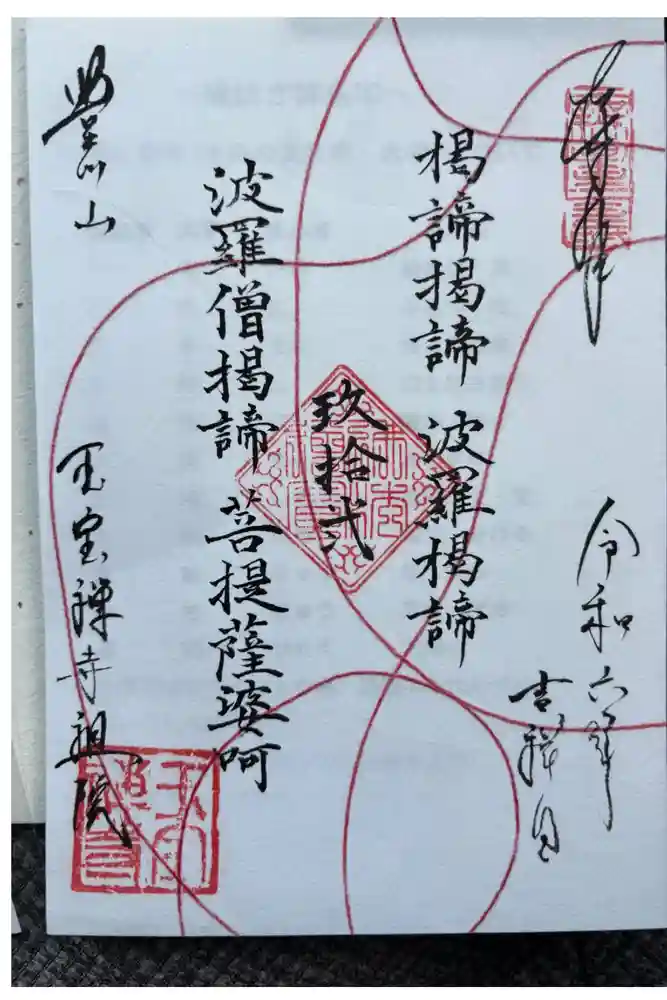 奉拝
令和六年
吉祥日
揭諦揭諦 波羅揭諦
玖拾弐
波羅僧揭諦 菩提薩婆呵
玉宝禅寺祖院